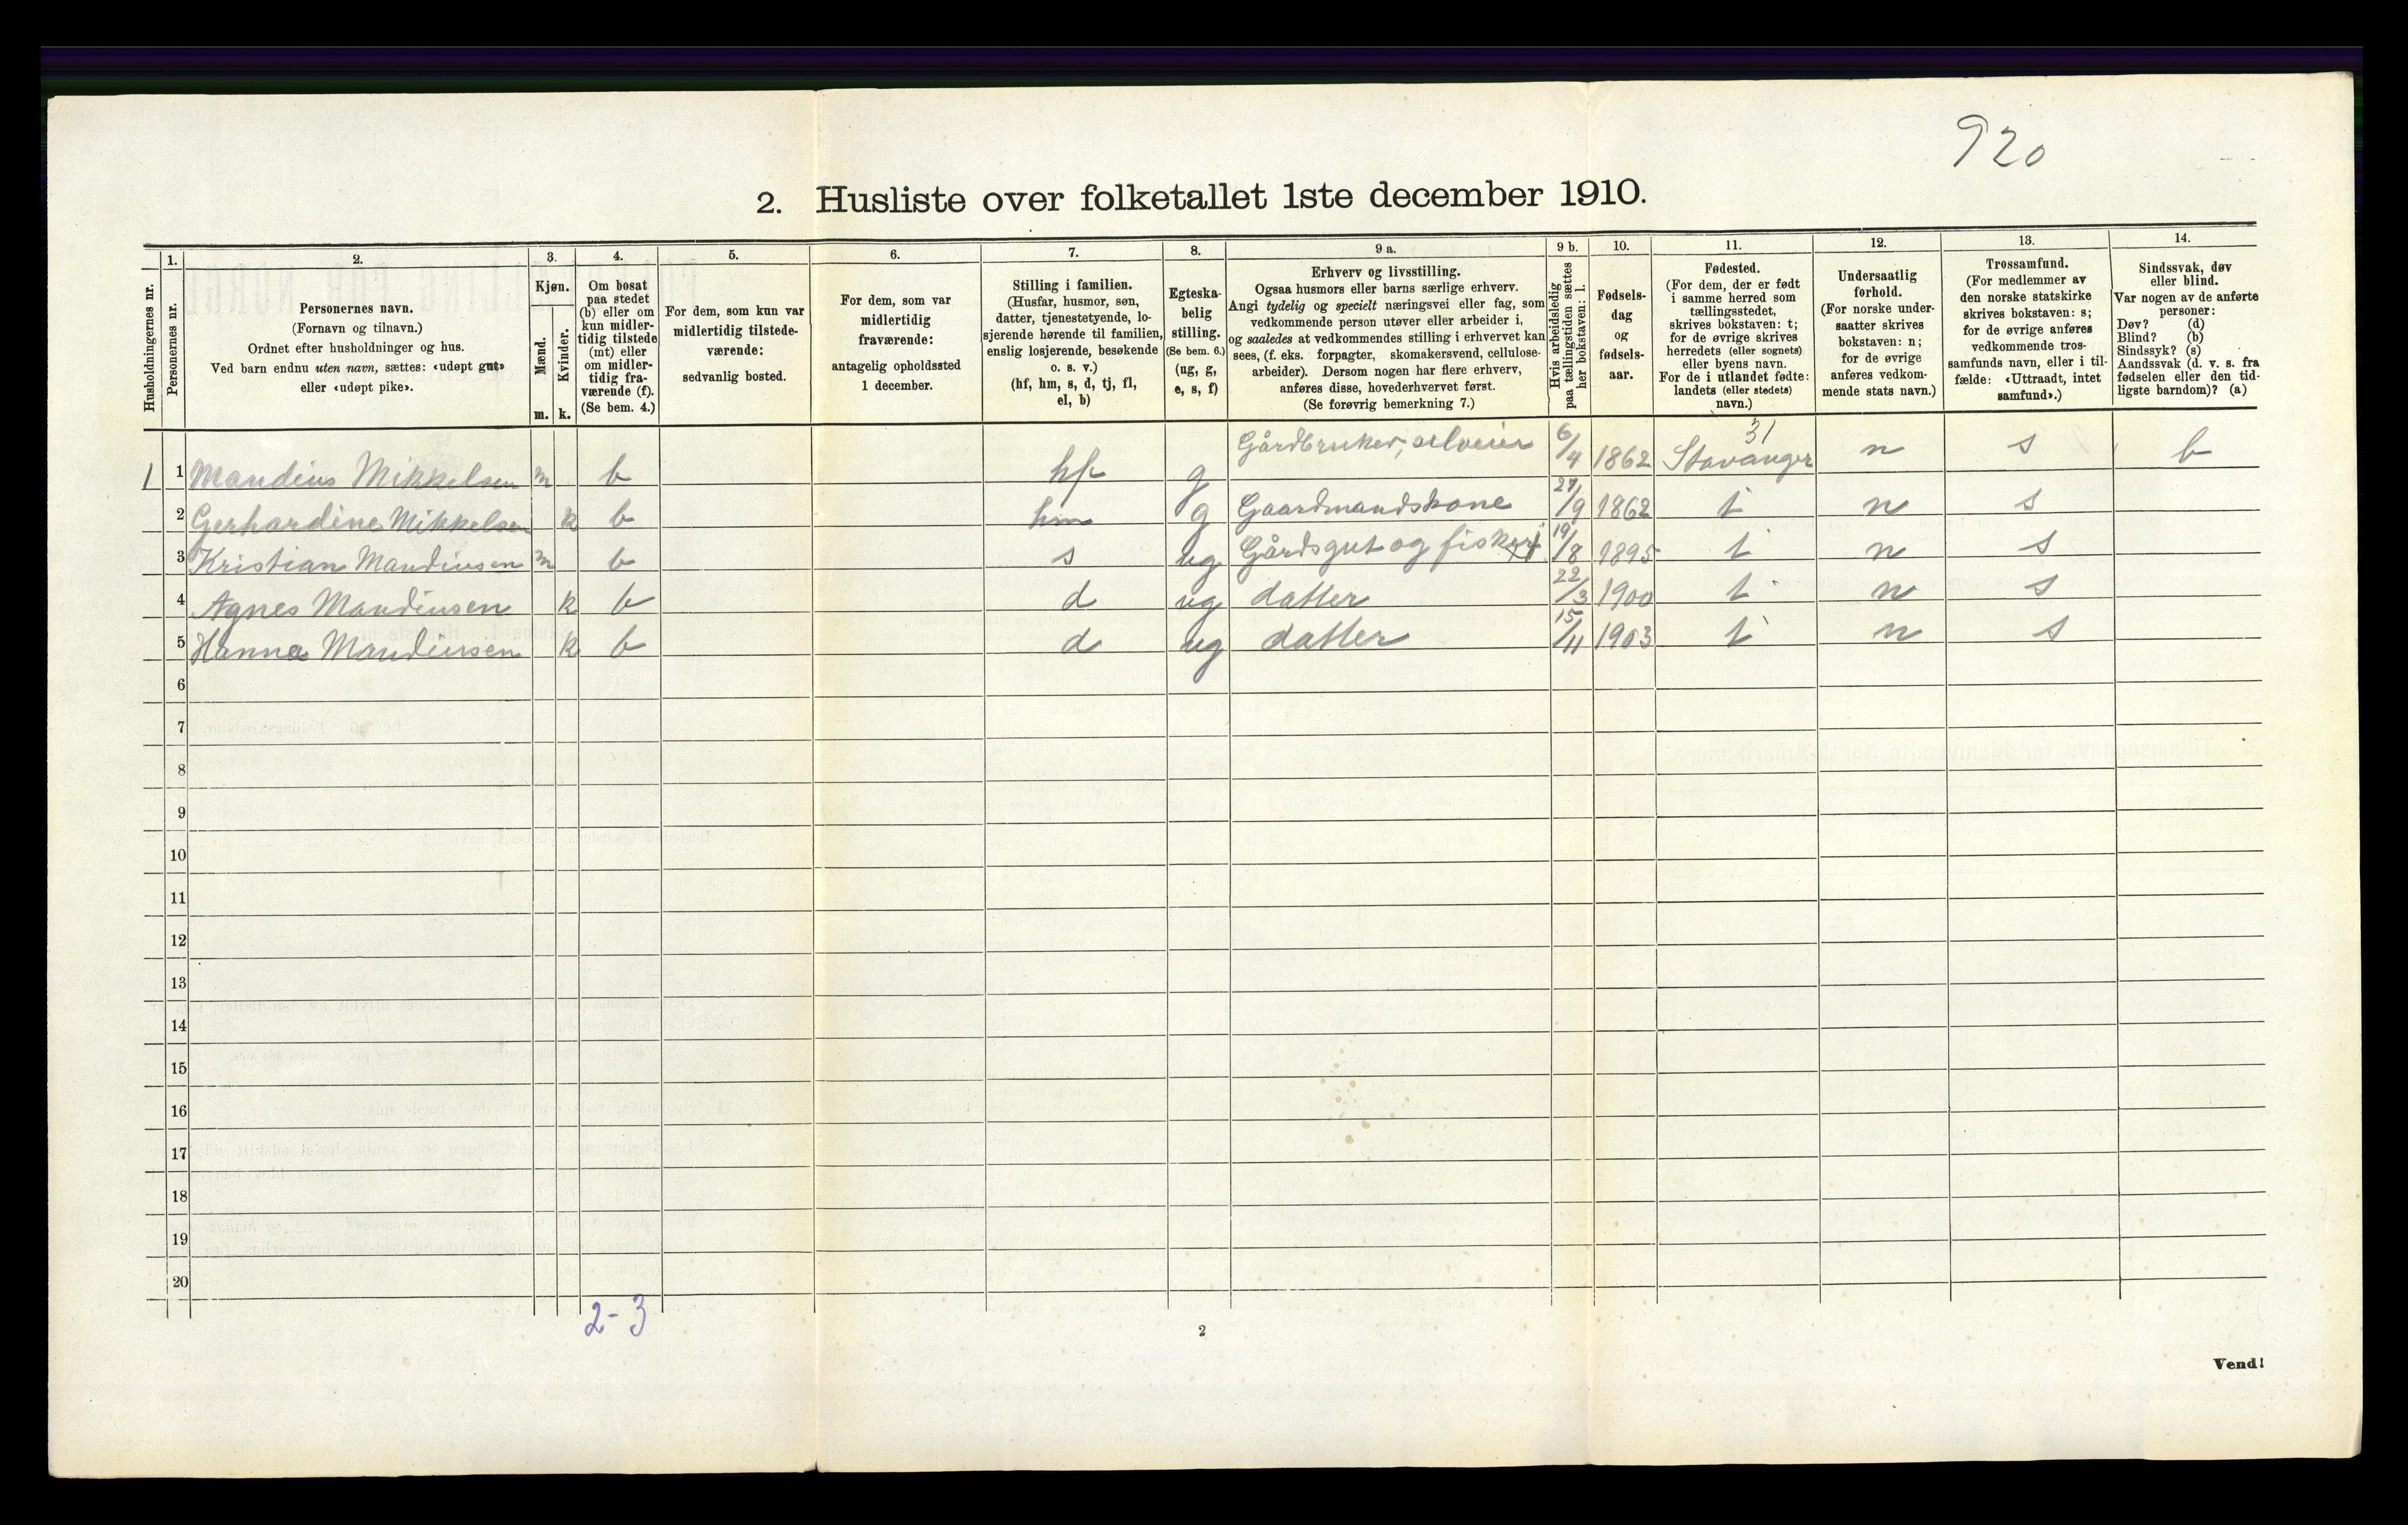 920
2. Husliste over folketallet 1ste december 1910.
Husholdningernes nr.
1.
Personernes nr.
2.
Personernes navn.
(Fornavn og tilnavn.)
Ordnet efter husholdninger og hus.
Ved barn endnu uten navn, sættes: «udøpt gut»
eller «udøpt pike».
3.
Kjøn.
Mænd.
m.
Kvinder.
k.
4.
Om bosat
paa stedet
(b) eller om
kun midler-
tidig tilstede
(mt) eller
om midler-
tidig fra-
værende (f).
(Se bem. 4.)
5.
For dem, som kun var
midlertidig tilstede-
værende:
sedvanlig bosted.
6.
For dem, som var
midlertidig
fraværende:
antagelig opholdssted
1 december.
7.
Stilling i familien.
(Husfar, husmor, søn,
datter, tjenestetyende, lo-
sjerende hørende til familien,
enslig losjerende, besøkende
o. s. v.)
(hf, hm, s, d, tj, fl,
el, b)
8.
Egteska-
belig
stilling.
(Se bem. 6.)
(ug, g,
e, s, f)
9 a.
Erhverv og livsstilling.
Ogsaa husmors eller barns særlige erhverv.
Angi tydelig og specielt næringsvei eller fag, som
vedkommende person utøver eller arbeider i,
og saaledes at vedkommendes stilling i erhvervet kan
sees, (f. eks. forpagter, skomakersvend, cellulose-
arbeider). Dersom nogen har flere erhverv,
anføres disse, hovederhvervet først.
(Se forøvrig bemerkning 7.)
9 b.
Hvis arbeidsledig
paa tællingstiden sættes
her bokstaven: l.
10.
Fødsels-
dag
og
fødsels-
aar.
11.
Fødested.
(For dem, der er født
i samme herred som
tællingsstedet,
skrives bokstaven: t;
for de øvrige skrives
herredets (eller sognets)
eller byens navn.
For de i utlandet fødte:
landets (eller stedets)
navn.)
12.
Undersaatlig
forhold.
(For norske under-
saatter skrives
bokstaven: n;
for de øvrige
anføres vedkom-
mende stats navn.)
13.
Trossamfund.
(For medlemmer av
den norske statskirke
skrives bokstaven: s;
for de øvrige anføres
vedkommende tros-
samfunds navn, eller i til-
fælde: «Uttraadt, intet
samfund».)
14.
Sindssvak, døv
eller blind.
Var nogen av de anførte
personer:
Døv? (d)
Blind? (b)
Sindssyk? (s)
Aandssvak (d. v. s. fra
fødselen eller den tid-
ligste barndom)? (a)
31
1 1 Mandius Mikkelsen m b hf g Gårdbruker, selveier 6/4 1862 Stavanger n s b
2 Gerhardine Mikkelsen k b hm g Gaardmandskone 27/9 1862 t n s
3 Kristian Mandiusen m b s ug Gårdsgut og fisker 19/8 1895 t n s
4 Agnes Mandiusen k b d ug datter 22/3 1900 t n s
5 Hanna Mandiusen k b d ug datter 15/11 1903 t n s
6
7
8
9
10
11
12
13
14
15
16
17
18
19
20
2-3
2
Vend!